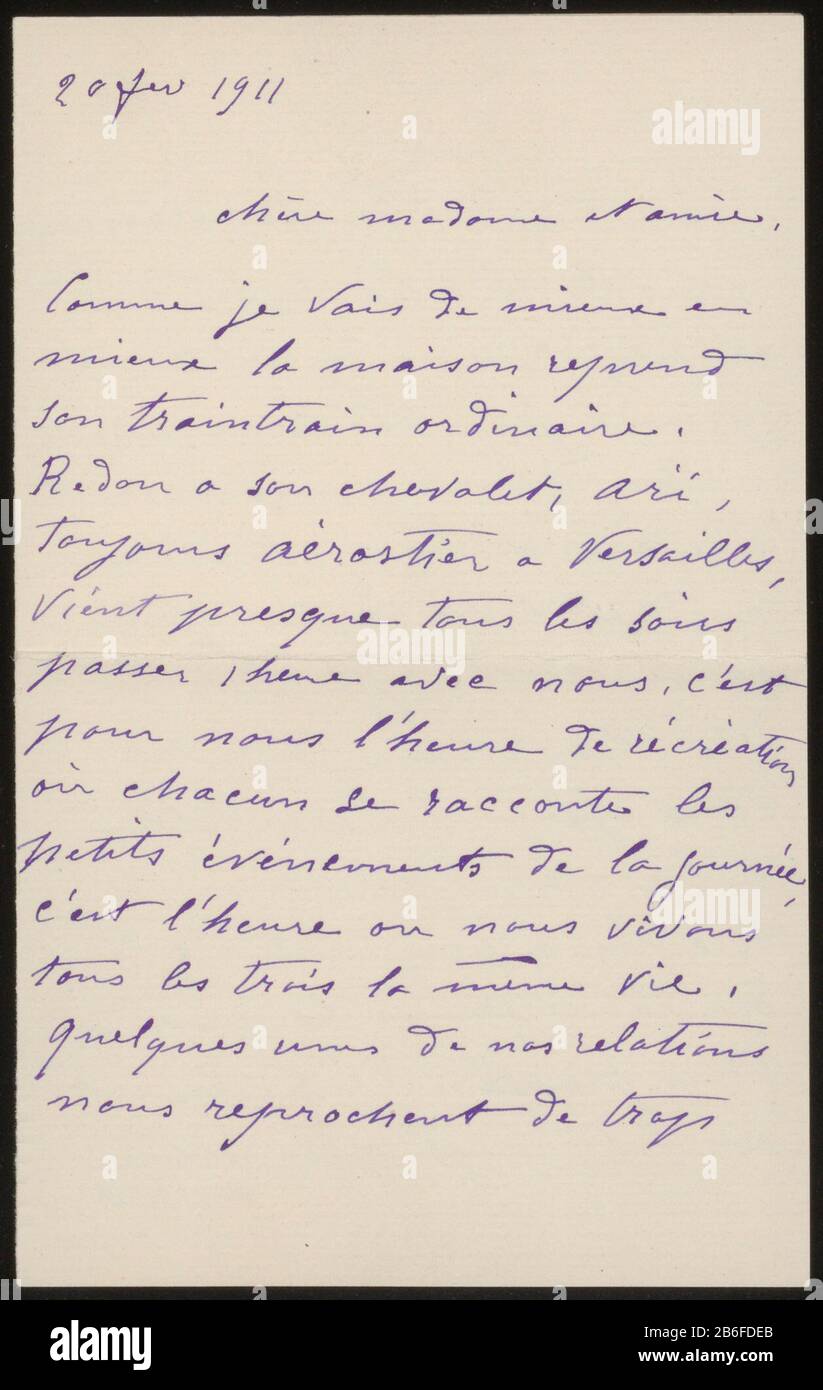 20 fev 1911
chère madame et amie,
Comme je vais de mieux en
mieux la maison reprend
son traintrain ordinaire.
Redon a son chevalet, Ari,
toujours aérostier a Versailles,
vient presque tous les soirs
passer 1 heure avec nous, c'est
pour nous l'heure de récréation
où chacun se racconte les
petits événements de la journée,
c'est l'heure ou nous vivons
tous les trois la même vie.
quelques unes de nos relations
nous reprochent de trop
alamy
Image ID: 2B6FDEB
www.alamy.com